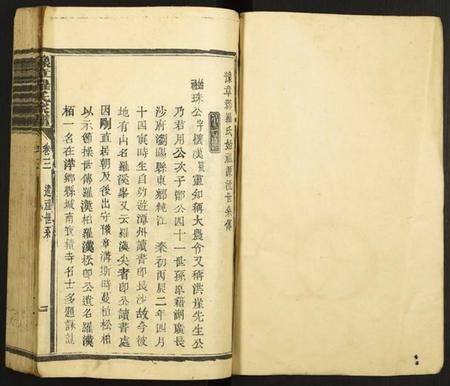 豫章郡羅氏始祖源流世系傳
珠公字懷漢
董知稱大農令又稱洪崖先生公
乃君用公次子鄮公四十一世孫原籍湖廣長
沙府瀏陽縣東鄉純江 秦初丙辰二年四月
十四寅時生自幼遊潭州讀書即長沙故今彼
地有山名羅漢峯又云羅漢尖者即公讀書處
因剛直居朝及後出守豫章溝斯時曼植松柏
以示節操世傳羅漢柏羅漢松即公遺名羅漢
栢一名在萍鄉縣城南寶積寺名士多題詠誌
卷二
遠祖世系
一